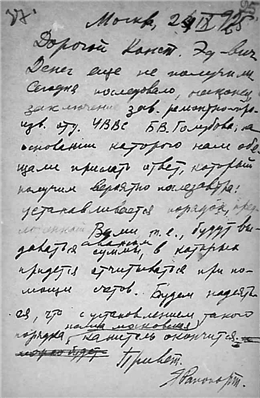 37.
Москва, 24/IX 1925
Дорогой Конст. Эд-вич
Денег еще не получили
Сегодня последовало, наконец,
заключение зав. ремонтно-про-
изв. отд. УВВС Б.В. Голубова, на
основании которого нам обе-
щали прислать ответ, который
получим вероятно послезавтра:
устанавливается порядок, пред-
ложенный Вами т.е., будут вы-
даваться авансом суммы, в которых
придется отчитываться при по-
мощи счетов. Будем надеять-
ся, что с установлением такого
порядка, наша московская канитель окончится.
Привет.
Рапопорт.